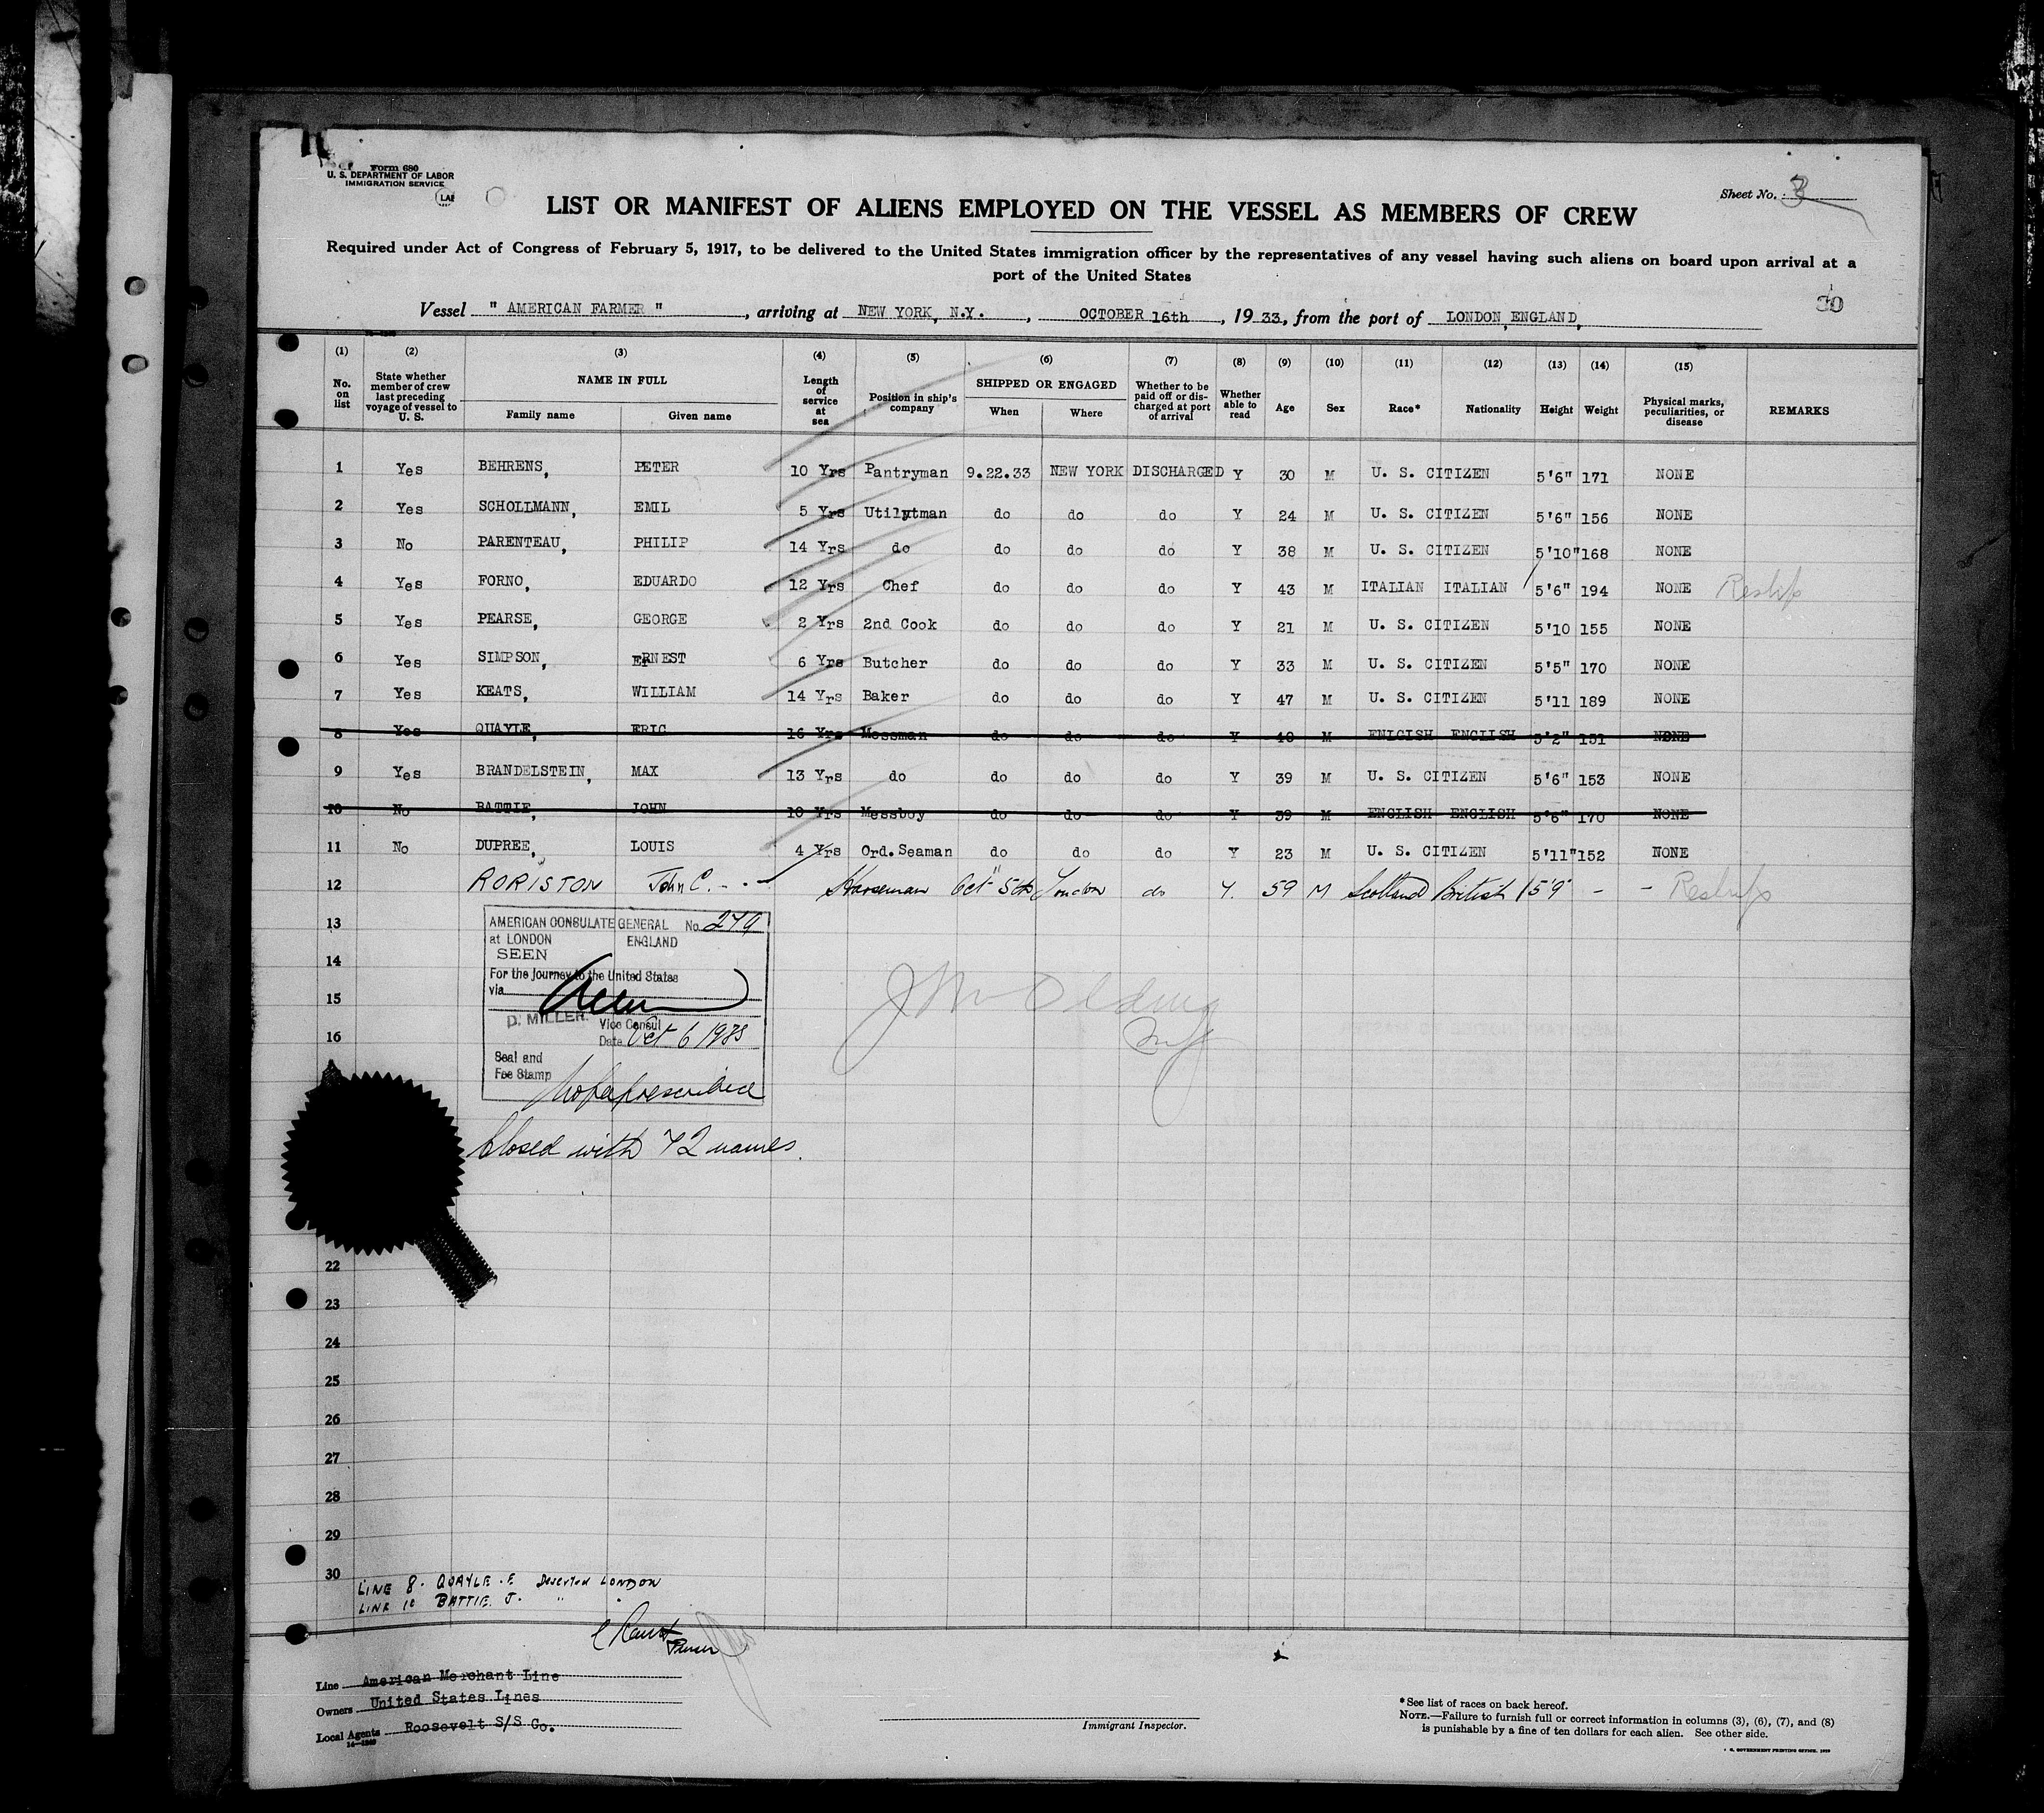 Form 680
U. S. DEPARTMENT OF LABOR
IMMIGRATION SERVICE
Sheet No. 3
LIST OR MANIFEST OF ALIENS EMPLOYED ON THE VESSEL AS MEMBERS OF CREW
Required under Act of Congress of February 5, 1917, to be delivered to the United States immigration officer by the representatives of any vessel having such aliens on board upon arrival at a
port of the United States
30
Vessel " AMERICAN FARMER ", arriving at NEW YORK, N.Y., OCTOBER 16th, 1933, from the port of LONDON, ENGLAND,
(1) (2) (3) (4) (5) (6) (7) (8) (9) (10) (11) (12) (13) (14) (15)
No. on list State whether member of crew last preceding voyage of vessel to U. S. NAME IN FULL Family name Given name Length of service at sea Position in ship's company SHIPPED OR ENGAGED When Where Whether to be paid off or discharged at port of arrival Whether able to read Age Sex Race* Nationality Height Weight Physical marks, peculiarities, or disease REMARKS
1 Yes BEHRENS, PETER 10 Yrs Pantryman 9.22.33 NEW YORK DISCHARGED Y 30 M U. S. CITIZEN 5'6" 171 NONE
2 Yes SCHOLLMANN, EMIL 5 Yrs Utilytman do do do Y 24 M U. S. CITIZEN 5'6" 156 NONE
3 No PARENTEAU, PHILIP 14 Yrs do do do do Y 38 M U. S. CITIZEN 5'10" 168 NONE
4 Yes FORNO, EDUARDO 12 Yrs Chef do do do Y 43 M ITALIAN ITALIAN 5'6" 194 NONE Reship
5 Yes PEARSE, GEORGE 2 Yrs 2nd Cook do do do Y 21 M U. S. CITIZEN 5'10 155 NONE
6 Yes SIMPSON, ERNEST 6 Yrs Butcher do do do Y 33 M U. S. CITIZEN 5'5" 170 NONE
7 Yes KEATS, WILLIAM 14 Yrs Baker do do do Y 47 M U. S. CITIZEN 5'11 189 NONE
8 Yes QUAYLE, ERIC 16 Yrs Messman do do do Y 40 M ENLGISH ENGLISH 5'2" 151 NONE
9 Yes BRANDELSTEIN, MAX 13 Yrs do do do do Y 39 M U. S. CITIZEN 5'6" 153 NONE
10 No BATTIE, JOHN 10 Yrs Messboy do do do Y 39 M ENGLISH ENGLISH 5'6" 170 NONE
11 No DUPREE, LOUIS 4 Yrs Ord. Seaman do do do Y 23 M U. S. CITIZEN 5'11" 152 NONE
12 RORISTON John C. - - - Horseman Oct 5th London do Y. 59 M Scotland British 5'9" - - Reship
13
14
15
16
AMERICAN CONSULATE GENERAL No. 279
at LONDON ENGLAND
SEEN
For the journey to the United States
via
D. MILLER.
Vice Consul
Date Oct 6 1933
Seal and
Fee Stamp
No fee prescribed
Closed with 72 names.
22
23
24
25
26
27
28
29
30
LINE 8. QUAYLE. E. Deserted LONDON
LINE 10 BATTIE. J. " "
Purser
Line American Merchant Line
Owners United States Lines
Local Agents Roosevelt S/S Co.
14—1240
Immigrant Inspector.
*See list of races on back hereof.
NOTE.—Failure to furnish full or correct information in columns (3), (6), (7), and (8)
is punishable by a fine of ten dollars for each alien. See other side.
U. S. GOVERNMENT PRINTING OFFICE. 1929